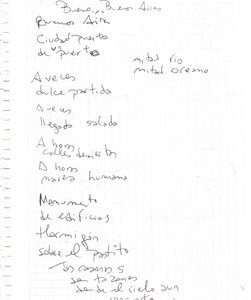 Bueno, Buenos Aires
Buenos Aires
Ciudad puerto
de puerto
mitad río
mitad océano
A veces
dulce partida
A veces
llegada salada
A horas
calles desiertas
A horas
marea humana
Monumento
de edificios
Hormigón
sobre el
Tus
donde el cielo aun